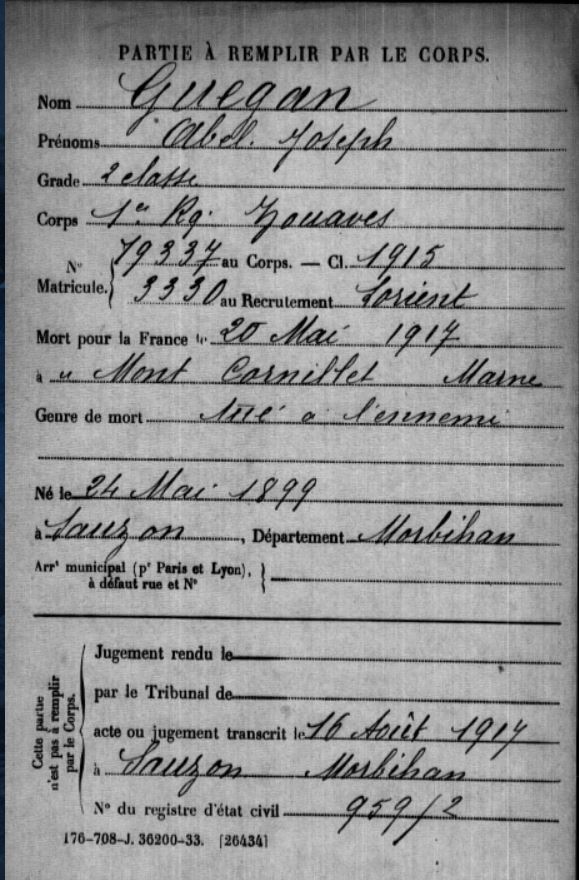 PARTIE À REMPLIR PAR LE CORPS.
Nom Guegan
Prénoms Abel. Joseph
Grade 2 classe
Corps 1er Rg. Zouaves
N° Matricule. 19337 au Corps. — Cl. 1915
3330 au Recrutement Lorient
Mort pour la France le 20 Mai 1917
à u Mont Cornillet Marne
Genre de mort tué à l'ennemi
Né le 24 Mai 1899
à Sauzon, Département Morbihan
Arrt municipal (pr Paris et Lyon),
à défaut rue et N°
Jugement rendu le
par le Tribunal de
acte ou jugement transcrit le 16 Août 1917
à Sauzon Morbihan
N° du registre d'état civil 959/2
Cette partie
n'est pas à remplir
par le Corps.
176-708-J. 36200-33. [26434]